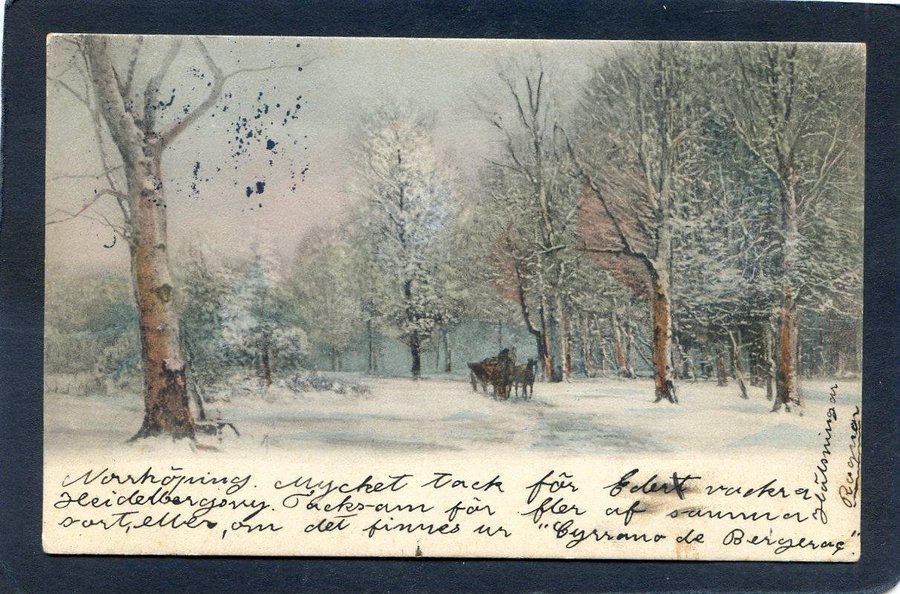 Norrköping. Mycket tack för Edert vackra
Heidelbergsvy. Tacksam för fler af samma
sort, eller, om det finnes ur "Cyrrano de Bergerac".
Hälsningar
Ragnar